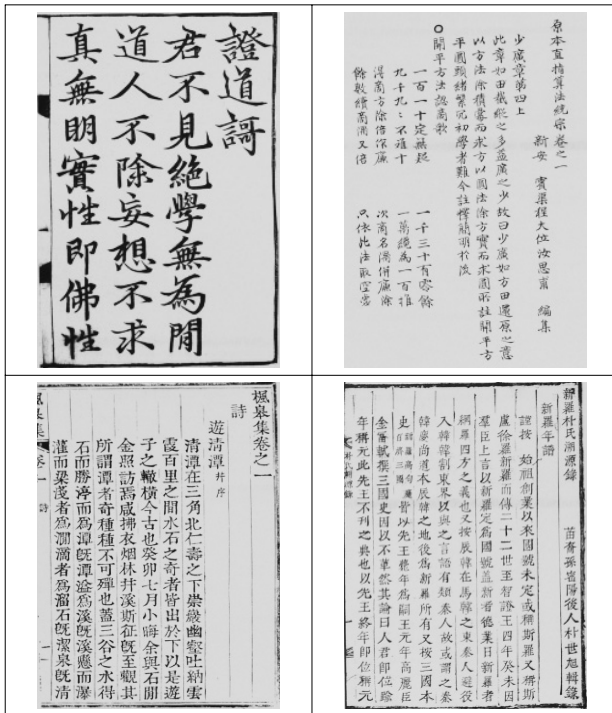 證道謌
君不見絕學無為閒
道人不除妄想不求
真無明實性即佛性
原本直指算法統宗卷之一
新安 賓渠程大位汝思甫 編集
少廣章第四上
此章如田截縱之多益廣之少故曰少廣如方田還原之意
以方法除積冪而求方以圓法除方實而求圓所註開平方
平圓頭緒繁冗初學者難今註釋簡明於後
○開平方法認商歌
一百一十定無疑 一千三十有零餘
九千九九不離十 一萬纔為一百推
得商方除倍作廉 次商名隅併廉除
餘數續商隅又倍 只依此法取空
楓皋集卷之一
詩
遊清潭 并序
清潭在三角北仁壽之下崇巖幽壑吐納雲
霞百里之間水石之奇者皆出於下以是遊
子之轍橫今古也癸卯七月小晦余與石閒
金照訪焉咸拂衣烟林并溪斯征旣至觀其
所謂潭者奇種種不可殫也蓋三谷之水得
石而勝渟而為潭旣潭溢為溪旣溪懸而瀑
灌而梁淺者為澗滴者為溜石旣潔泉旣清
楓皋集 卷一 詩 一
新羅朴氏溯源錄
苗裔孫密陽後人朴世旭輯錄
新羅年譜
謹按 始祖創業以來國號未定或稱斯羅又稱斯
盧徐羅新羅而傳二十二世至智證王四年癸未因
羣臣上言以新羅定為國號蓋新者德業日新羅者
網羅四方之義也又按辰韓在馬韓之東秦人避役
入韓韓割東界以與之言語有類秦人故或謂之秦
韓慶尚道本辰韓之地後為新羅所有又按三國本
史新羅高句麗百濟三國皆以先王薨年為嗣王元年高麗臣
金富軾撰三國史因以不革然其論曰人君即位踰
年稱元此先王不刊之典也以先王終年即位稱元